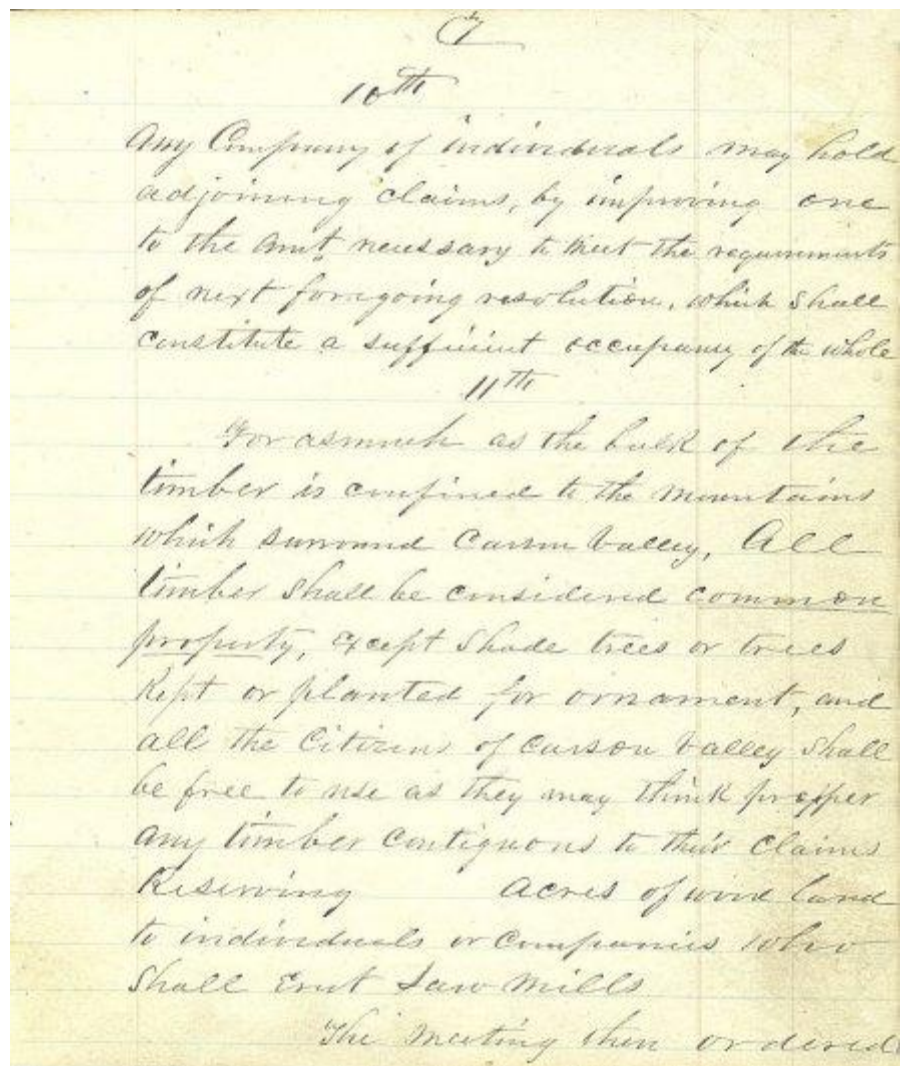 7
10th
Any Company of individuals may hold
adjoining claims, by improving one
to the amt necessary to meet the requirements
of next foregoing resolution, which shall
constitute a sufficient occupancy of the whole
11th
For asmuch as the bulk of the
timber is confined to the mountains
which surround Carson Valley, All
timber shall be considered common
property, Except Shade trees or trees
Kept or planted for ornament, and
all the Citizens of Carson Valley Shall
be free to use as they may think propper
any timber contiguous to their Claims
Reserving Acres of wood land
to individuals or Companies who
Shall Erect Saw Mills
The Meeting then ordered